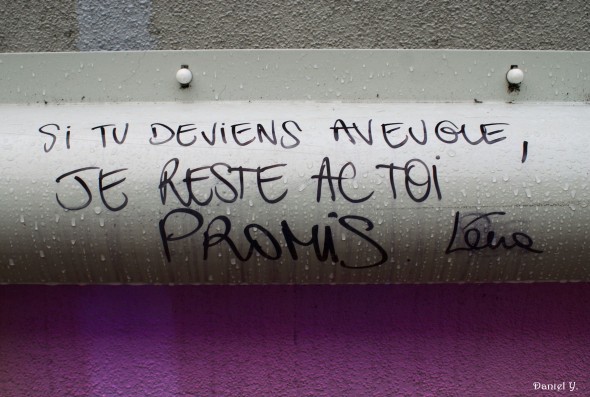 Si TU DEVIENS AVEUGLE,
JE RESTE AC TOi
PROMiS Léna
Daniel Y.